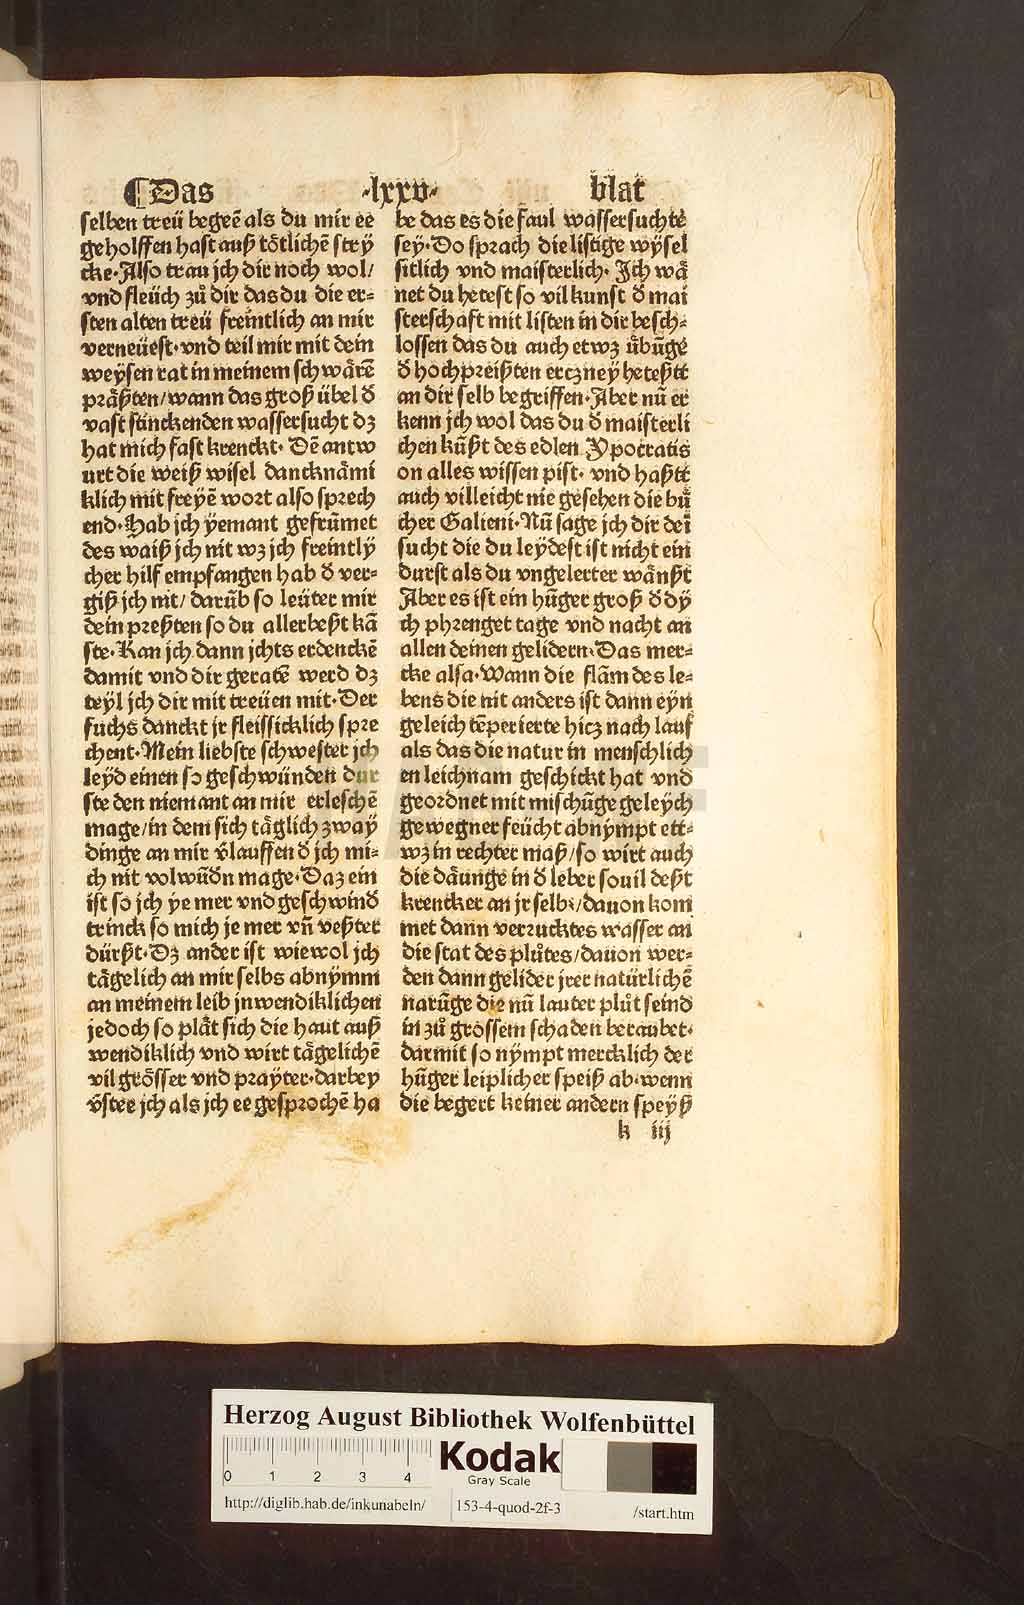 ¶Das ·lxxv· blat
selben treü begeē als du mir ee
geholffen hast auß tötlichē stry
cke·Also trau jch dir noch wol/
vnd fleüch zů dir das du die er=
sten alten treü freintlich an mir
verneüest·vnd teil mir mit dein
weysen rat in meinem schwärē
präßten/wann das groß übel ð
vast stinckenden wassersucht dz
hat mich fast krenckt· Dē antw
urt die weiß wisel dancknämi
klich mit freyē wort also sprech
end·Hab jch yemant gefrūmet
des waiß jch nit wz jch freintly
cher hilf empfangen hab ð ver=
giß jch nit/ darūb so leüter mir
dein preßten so du allerbeßt kā
ste·Kan jch dann jchts erdenckē
damit vnd dir geratē werd dz
teyl jch dir mit treüen mit·Der
fuchs danckt jr fleissicklich spre
chent·Mein liebste schwester jch
leyd einen so geschwünden dur
ste den niemant an mir erleschē
mage/in dem sich täglich zway
dinge an mir v̄lauffen ð jch mi=
ch nit volwūdn mage·Daz ein
ist so jch ye mer vnd geschwind
trinck so mich je mer vn̄ veßter
dürßt·Dz ander ist wiewol jch
tägelich an mir selbs abnymm
an meinem leib jnwendiklichen
jedoch so plāt sich die haut auß
wendiklich vnd wirt tägelichē
vil grösser vnd prayter·darbey
v̄stee jch als jch ee gesprochē ha
be das es die faul wassersuchtē
sey·Do sprach die listige wysel
sitlich vnd maisterlich· Ich wā
net du hetest so vil kunst ð mai
sterschaft mit listen in dir besch=
lossen das du auch etwz übūge
ð hochpreißten erczney heteßtt
an dir selb begriffen·Aber nū er
kenn jch wol das du ð maisterli
chen kūßt des edlen Ypocratis
on alles wissen pist· vnd haßtt
auch villeicht nie gesehen die bů
cher Galieni·Nū sage jch dir deī
sucht die du leydest ist nicht ein
durst als du vngelerter wänßt
Aber es ist ein hūger groß ð dy
ch phrenget tage vnd nacht an
allen deinen gelidern·Das mer=
cke alsa·Wann die flām des le=
bens die nit anders ist dann eyn
geleich tēperierte hicz nach lauf
als das die natur in menschlich
en leichnam geschickt hat vnd
geordnet mit mischūge geleych
gewegner feücht abnympt ett=
wz in rechter maß/so wirt auch
die däunge in ð leber souil deßt
krencker an jr selbs/dauon kom
met dann verzucktes wasser an
die stat des plůtes/dauon wer=
den dann gelider jrer natürlichē
narūge die nū lauter plůt seind
in zů grössem schaden beraubet·
darmit so nympt mercklich der
hūger leiplicher speiß ab·wenn
die begert keiner andern speyß
k iij
Herzog August Bibliothek Wolfenbüttel
0 1 2 3 4
Kodak
Gray Scale
http://diglib.hab.de/inkunabeln/ 153-4-quod-2f-3 /start.htm